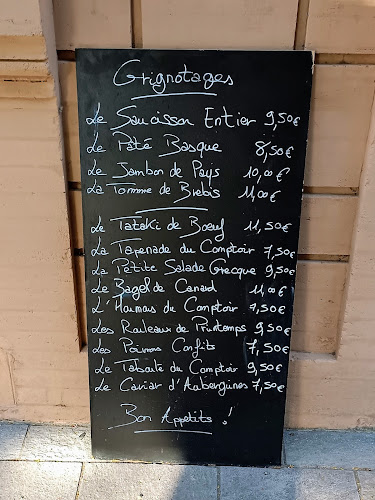 Grignotages
Le Saucisson Entier 9,50€
Le Pâté Basque 8,50€
Le Jambon de Pays 10,00€
La Tomme de Brebis 11,00€
Le Tataki de Bœuf 11,50€
La Tapenade du Comptoir 7,50€
La Petite Salade Grecque 9,50€
Le Bagel de Canard 11,00€
L'Houmous du Comptoir 7,50€
Les Rouleaux de Printemps 9,50€
Les Poivrons Confits 7,50€
Le Taboulé du Comptoir 9,50€
Le Caviar d'Aubergines 7,50€
Bon Appetits !